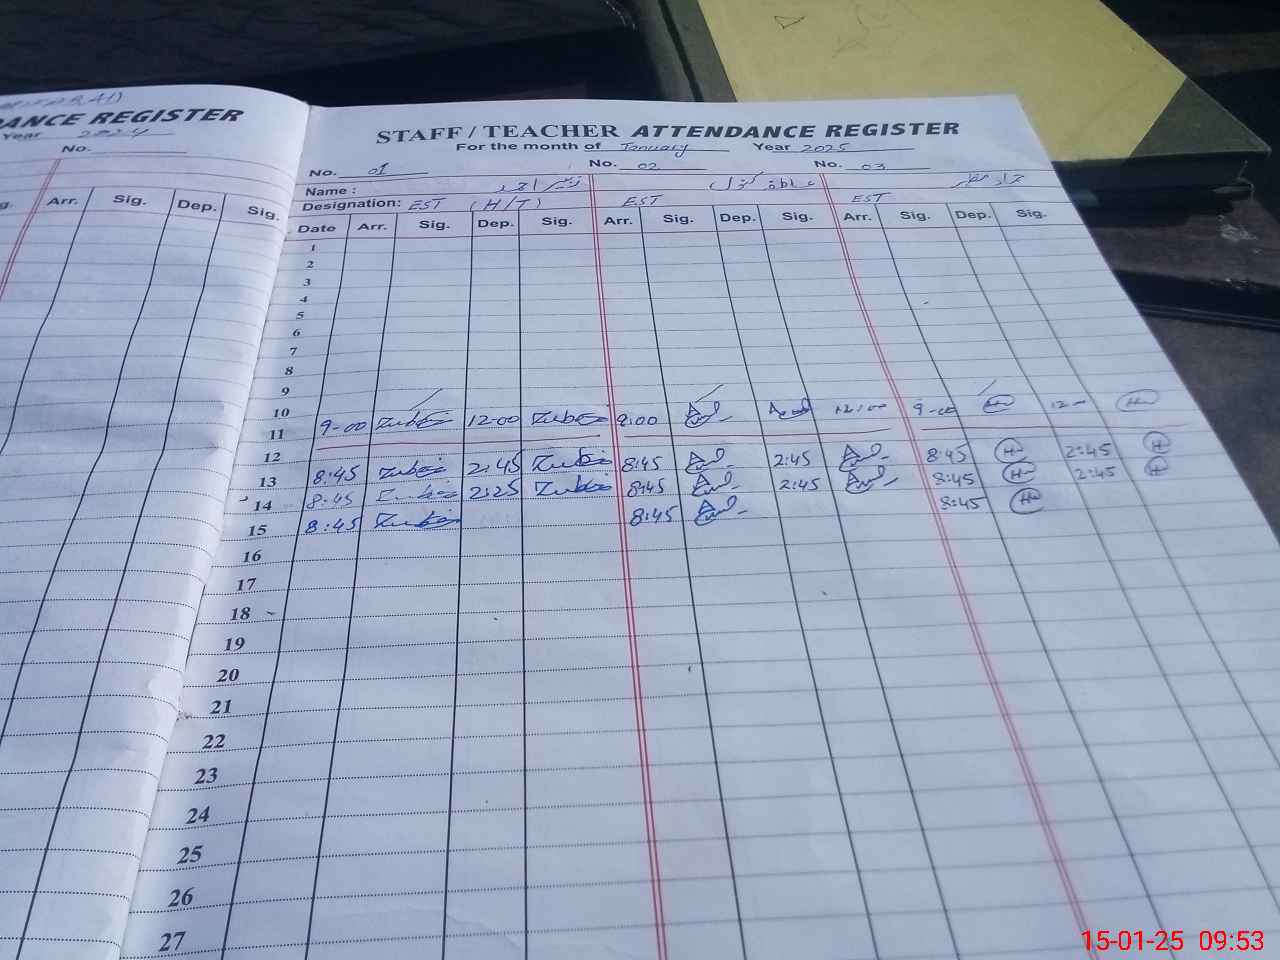 ANCE REGISTER
Year 2024
No.
Arr. Sig. Dep. Sig.
STAFF / TEACHER ATTENDANCE REGISTER
For the month of January Year 2025
No. 01 No. 02 No. 03
Name :
Designation: EST (H/T) EST EST
Date Arr. Sig. Dep. Sig. Arr. Sig. Dep. Sig. Arr. Sig. Dep. Sig.
1
2
3
4
5
6
7
8
9
10
11 9-00 Zubair 12-00 Zubair 9:00 12:00 9-00 12-00
12
13 8:45 Zubair 2:45 Zubair 8:45 2:45 8:45 2:45
14 8:45 Zubair 2:25 Zubair 8:45 2:45 8:45 2:45
15 8:45 Zubair 8:45 8:45
16
17
18
19
20
21
22
23
24
25
26
27
15-01-25 09:53